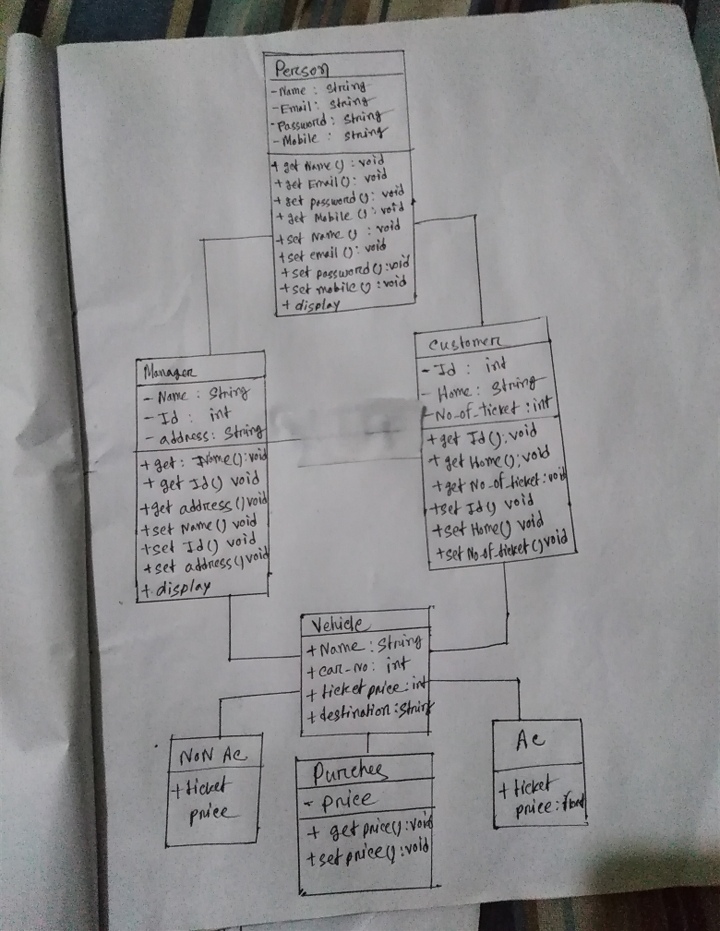 Person
- Name : String
- Email : String
- Password : String
- Mobile : String
+ get Name () : void
+ get Email () : void
+ get password () : void
+ get Mobile () : void
+ set Name () : void
+ set email () : void
+ set password () : void
+ set mobile () : void
+ display
Manager
- Name : String
- Id : int
- address : String
+ get : Name () : void
+ get Id () void
+ get address () void
+ set Name () void
+ set Id () void
+ set address () void
+ display
Customer
- Id : int
- Home : String
- No-of-ticket : int
+ get Id () : void
+ get Home () : void
+ get No-of-ticket : void
+ set Id () void
+ set Home () void
+ set No-of-ticket () void
Vehicle
+ Name : String
+ car-No : int
+ ticket price : int
+ destination : String
NoN Ac
+ ticket
price
Purches
- price
+ get price () : void
+ set price () : void
Ac
+ ticket
price :